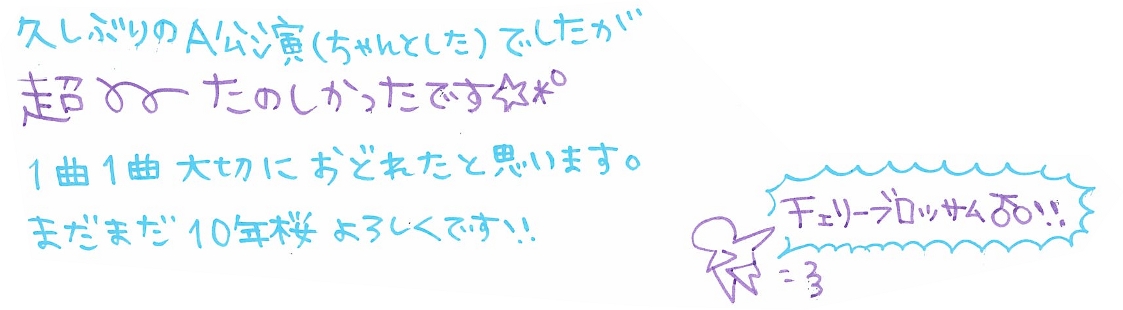 久しぶりのA公演(ちゃんとした)でしたが
超〜〜たのしかったです☆*°
1曲1曲大切におどれたと思います。
まだまだ10年桜よろしくです!!
チェリーブロッサム!!